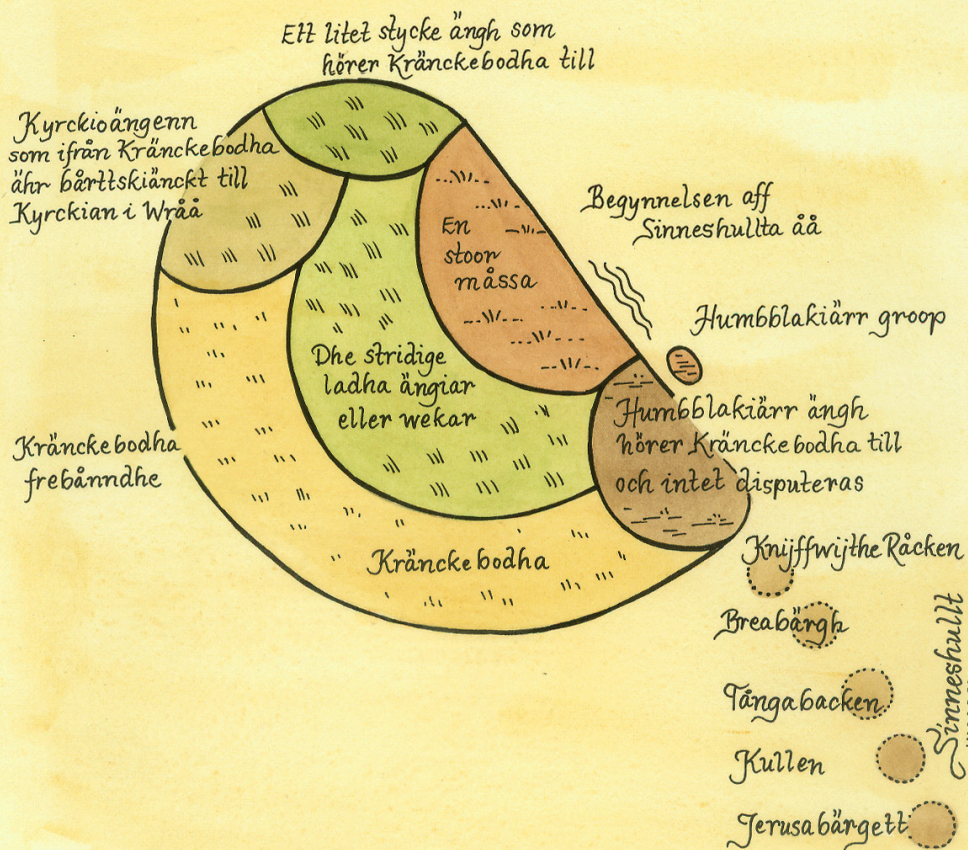 Ett litet stycke ängh som
hörer Kränckebodha till
Kyrckioängenn
som ifrån Kränckebodha
ähr bårttskiänckt till
Kyrckian i Wråå
Begynnelsen aff
Sinneshullta åå
En
stoor
måssa
Humbblakiärr groop
Dhe stridige
ladha ängiar
eller wekar
Humbblakiärr ängh
hörer Kränckebodha till
och intet disputeras
Kränckebodha
frebånndhe
Kränckebodha
Knijffwijthe Råcken
Breabärgh
Tångabacken
Kullen
Jerusabärgett
Sinneshullt